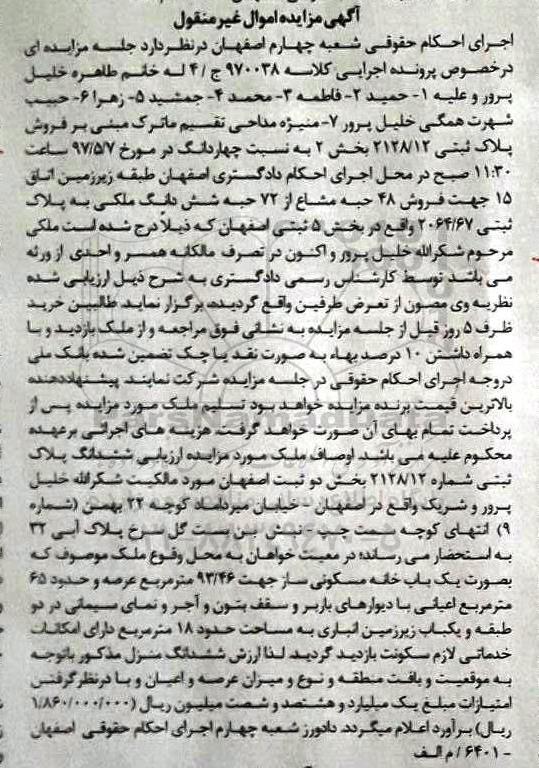 آگهی مزایده اموال غیر منقول
اجرای احکام حقوقی شعبه چهارم اصفهان درنظر دارد جلسه مزایده ای
درخصوص پرونده اجرایی کلاسه ۹۷۰۰۳۸ ج / ۴ له خانم طاهره خلیل
پرور و علیه ۱- حمید ۲- فاطمه ۳- محمد ۴- جمشید ۵- زهرا ۶- حبیب
شهرت همگی خلیل پرور ۷- منیژه مداحی تقسیم ماترک مبنی بر فروش
پلاک ثبتی ۲۱۲۸/۱۲ بخش ۲ به نسبت چهاردانگ در مورخ ۹۷/۵/۷ ساعت
۱۱:۳۰ صبح در محل اجرای احکام دادگستری اصفهان طبقه زیرزمین اتاق
۱۵ جهت فروش ۴۸ حبه مشاع از ۷۲ حبه شش دانگ ملکی به پلاک
ثبتی ۲۰۶۴/۶۷ واقع در بخش ۵ ثبتی اصفهان که ذیلاً درج شده است ملکی
مرحوم شکرالله خلیل پرور و اکنون در تصرف مالکانه همسر و احدی از ورثه
می باشد توسط کارشناس رسمی دادگستری به شرح ذیل ارزیابی شده
نظریه وی مصون از تعرض طرفین واقع گردیده، برگزار نماید. طالبین خرید
ظرف ۵ روز قبل از جلسه مزایده به نشانی فوق مراجعه و از ملک بازدید و با
همراه داشتن ۱۰ درصد بهاء به صورت نقد یا چک تضمین شده بانک ملی
دروجه اجرای احکام حقوقی در جلسه مزایده شرکت نمایند. پیشنهاددهنده
بالاترین قیمت برنده مزایده خواهد بود تسلیم ملک مورد مزایده پس از
پرداخت تمام بهای آن صورت خواهد گرفت. هزینه های اجرائی برعهده
محکوم علیه می باشد. اوصاف ملیک مورد مزایده ارزیابی ششدانگ پلاک
ثبتی شماره ۲۱۲۸/۱۲ بخش دو ثبت اصفهان مورد مالکیت شکرالله خلیل
پرور و شریک واقع در اصفهان - خیابان میرداماد کوچه ۲۲ بهمن (شماره
۹) انتهای کوچه سمت چپ - نبش بن بست گل سرخ پلاک آبی ۳۲
به استحضار می رساند؛ در معیت خواهان به محل وقوع ملک موصوف که
بصورت یک باب خانه مسکونی ساز جهت ۹۳/۴۶ مترمربع عرصه و حدود ۶۵
مترمربع اعیانی با دیوارهای باربر و سقف بتون و آجر و نمای سیمانی در دو
طبقه و یکباب زیرزمین انباری به مساحت حدود ۱۸ مترمربع دارای امکانات
خدماتی لازم سکونت بازدید گردید. لذا ارزش ششدانگ منزل مذکور باتوجه
به موقعیت و بافت منطقه و نوع و میزان عرصه و اعیان و با درنظرگرفتن
امتیازات مبلغ یک میلیارد و هشتصد و شصت میلیون ریال (۱/۸۶۰/۰۰۰/۰۰۰
ریال) برآورد اعلام میگردد. دادورز شعبه چهارم اجرای احکام حقوقی اصفهان
- ۶۴۰۱ / م الف